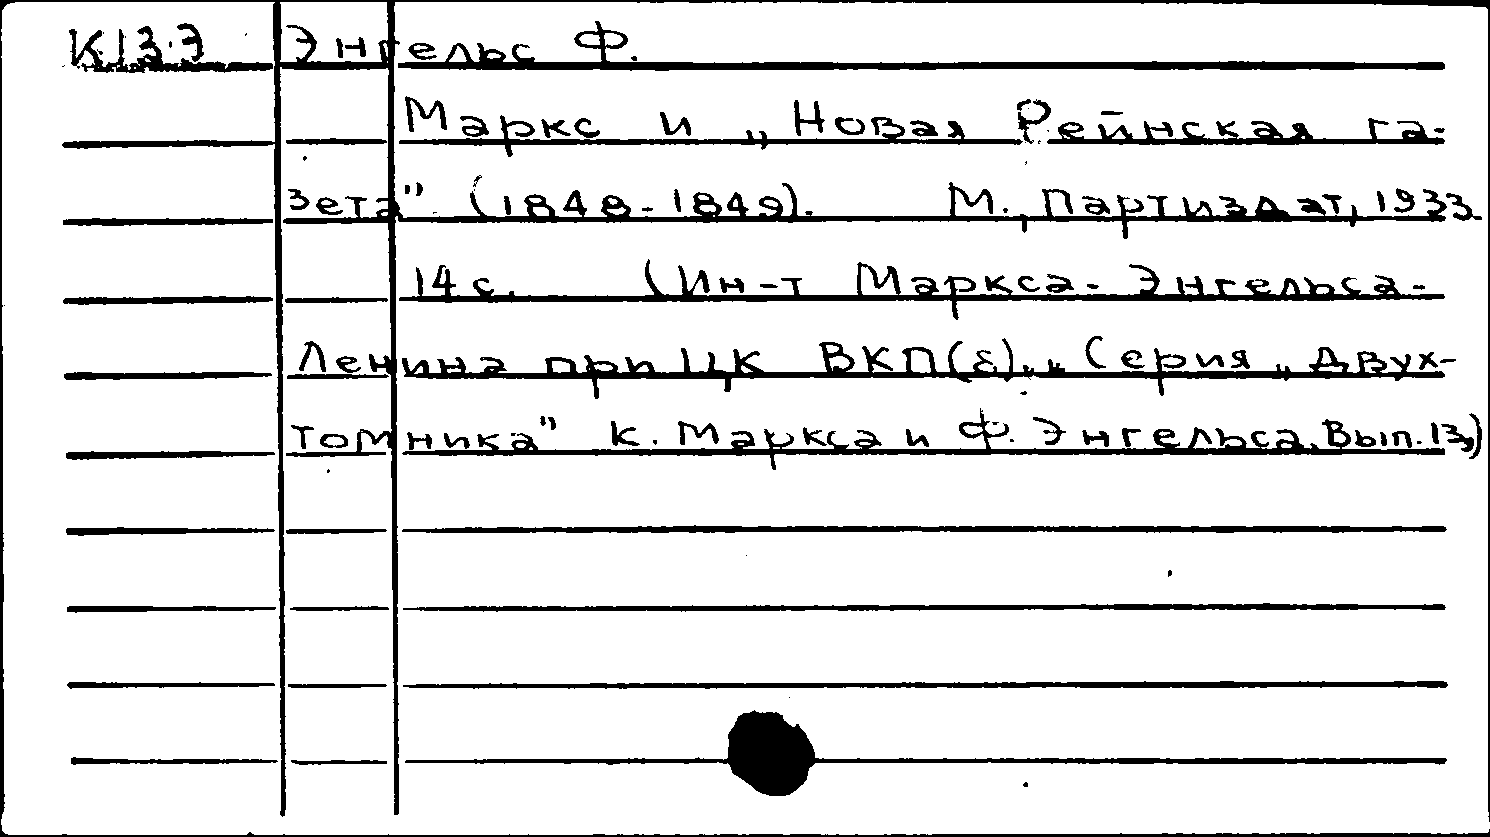 К13.Э Энгельс Ф.
Маркс и „Новая Рейнская га-
зета" (1848-1849). М., Партиздат, 1933.
14 с. (Ин-т Маркса-Энгельса-
Ленина при ЦК ВКП(б). „Серия „Двух-
томника" К. Маркса и Ф. Энгельса. Вып. 13,)